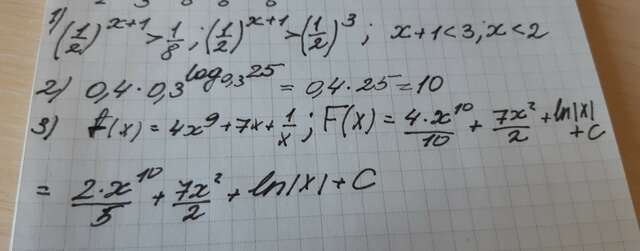 1) (1/2)^(x+1) > 1/8 ; (1/2)^(x+1) > (1/2)^3 ; x+1<3; x<2
2) 0,4 · 0,3^(log_0,3 25) = 0,4 · 25 = 10
3) f(x) = 4x^9 + 7x + 1/x ; F(x) = 4·x^10/10 + 7x^2/2 + ln|x| + C
= 2·x^10/5 + 7x^2/2 + ln|x| + C